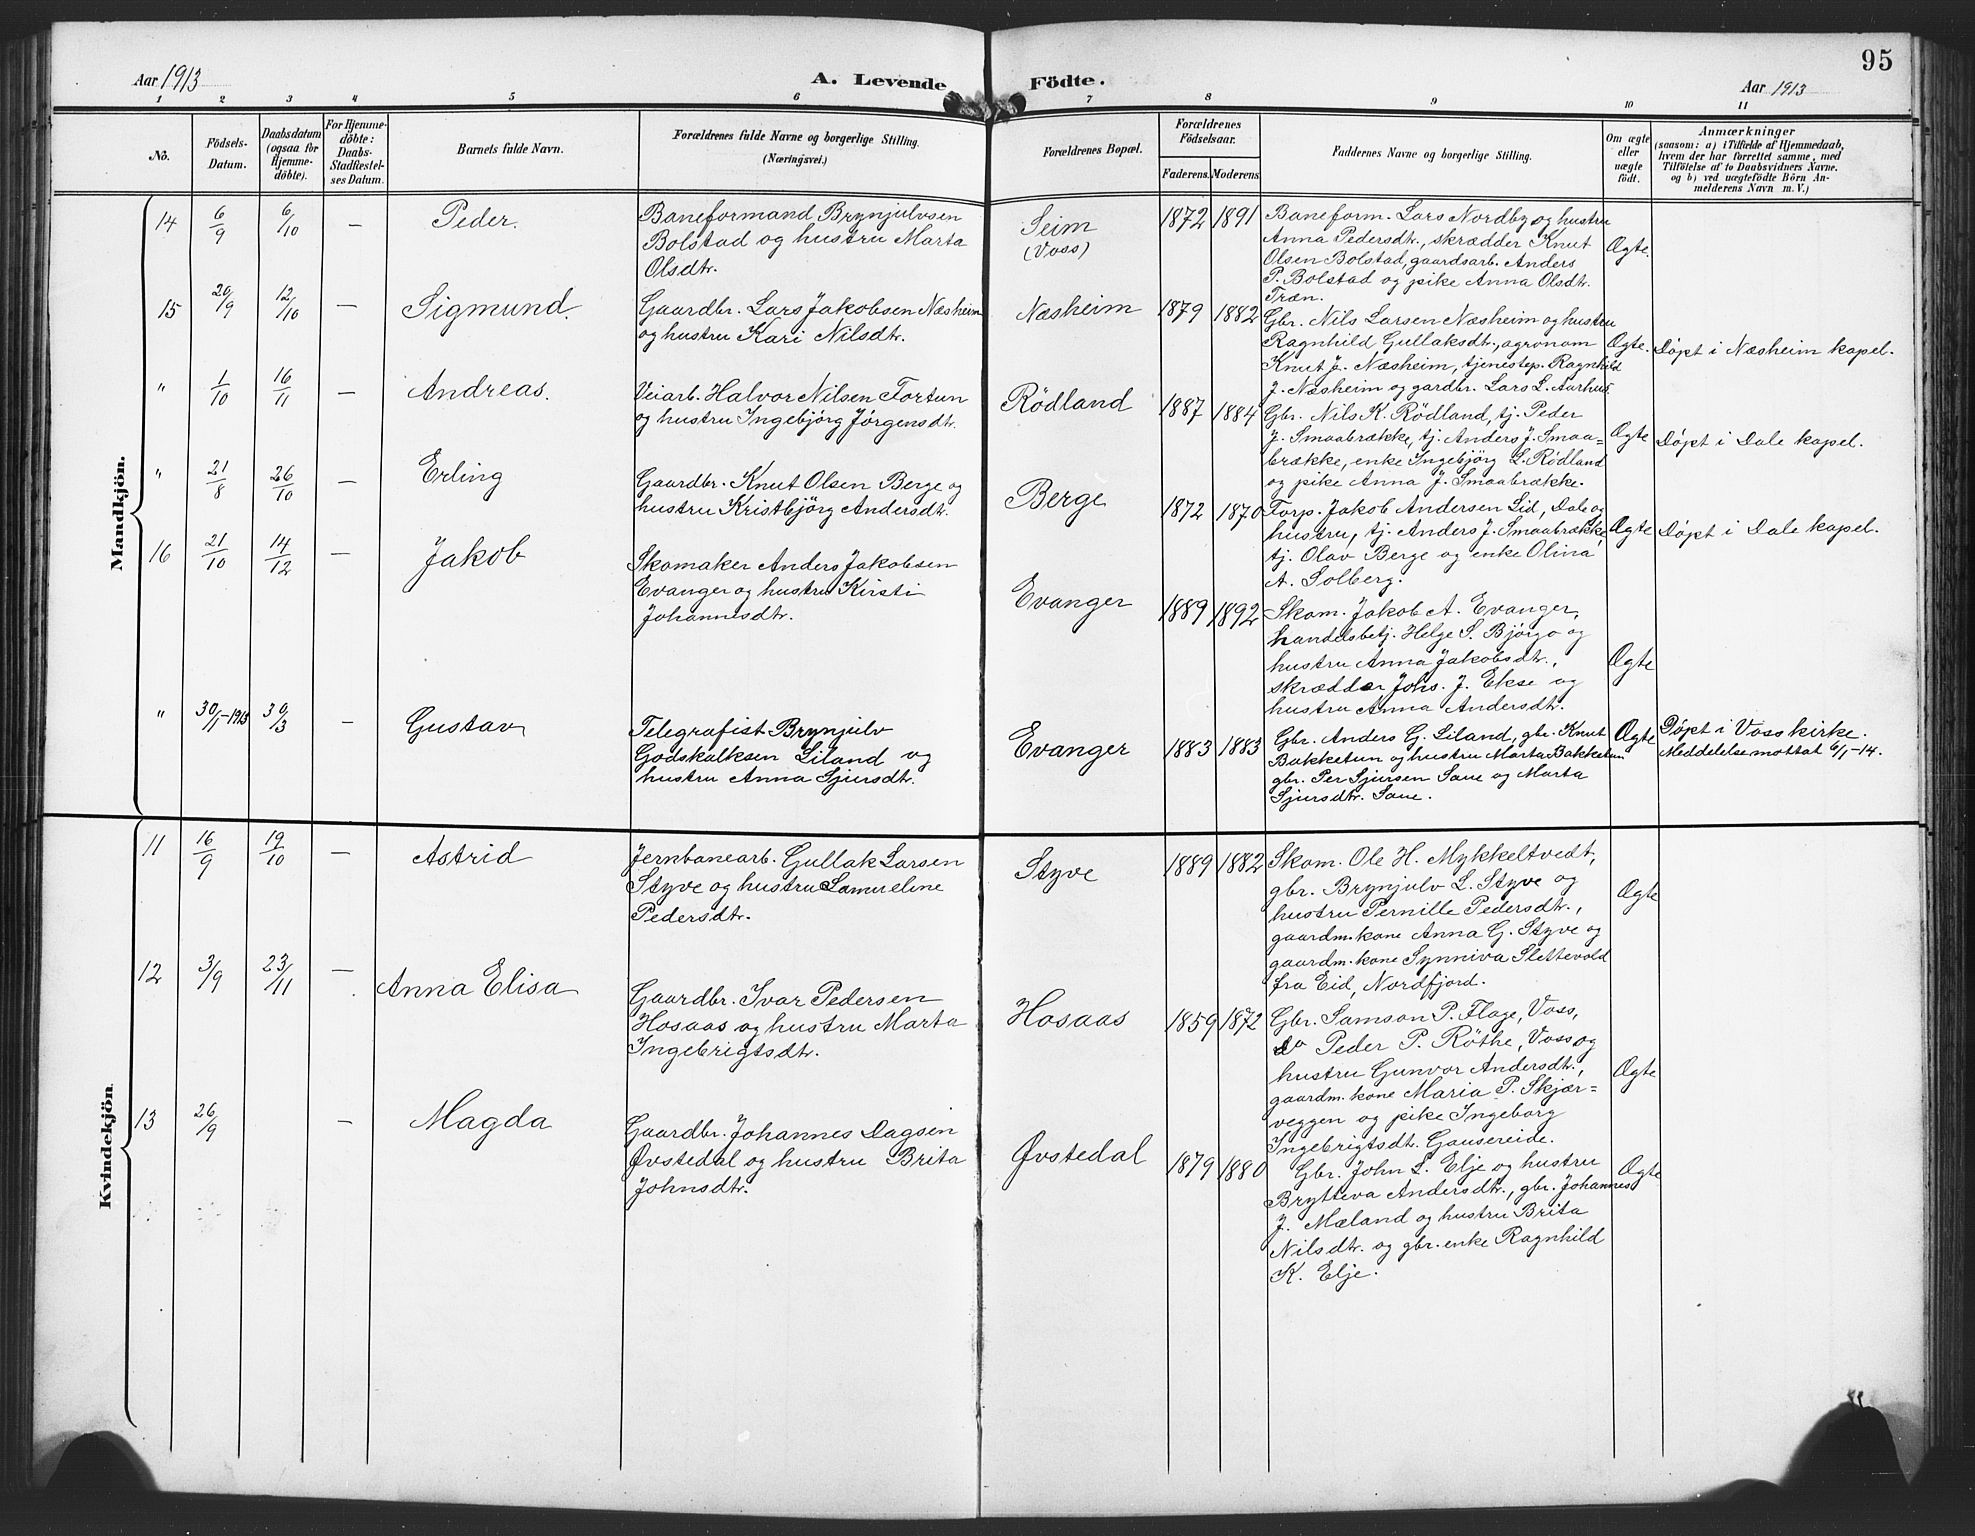 95
Aar 1913
A. Levende Födte.
Aar 1913
1 2 3 4 5 6 7 8 9 10 11
No.
Födsels-
Datum.
Daabsdatum
(ogsaa for
Hjemme-
döbte).
For Hjemme-
döbte:
Daabs-
Stadfæstel-
ses Datum.
Barnets fulde Navn.
Forældrenes fulde Navne og borgerlige Stilling.
(Næringsvei.)
Forældrenes Bopæl.
Forældrenes
Födselsaar.
Faderens. Moderens
Faddernes Navne og borgerlige Stilling.
Om ægte
eller
uægte
födt.
Anmærkninger
(saasom: a) i Tilfælde af Hjemmedaab,
hvem der har forrettet samme, med
Tilföielse af to Daabsvidners Navne.
og b) ved uægtefödte Börn An-
melderens Navn m. V.)
Mandkjön.
14 6/9 6/10 — Peder.
Baneformand Brynjulvsen
Bolstad og hustru Marta
Olsdtr.
Seim
(Voss)
1872 1891
Baneform. Lars Nordby og hustru
Anna Pedersdtr., skrædder Knut
Olsen Bolstad, gaardsarb. Anders
P. Bolstad og pike Anna Olsdtr.
Træn.
Ægte.
15 20/9 12/10 — Sigmund.
Gaardbr. Lars Jakobsen Næsheim
og hustru Kari Nilsdtr.
Næsheim
1879 1882
Gbr. Nils Larsen Næsheim og hustru
Ragnhild Gullaksdtr., agronom
Knut J. Næsheim, tjenestep. Ragnhild
J. Næsheim og gardbr. Lars L. Aarhus.
Ægte.
Døpt i Næsheim kapel.
" 1/10 16/11 — Andreas.
Veiarb. Halvor Nilsen Fortun
og hustru Ingebjørg Jørgensdtr.
Rødland
1887 1884
Gbr. Nils K. Rødland, tj. Peder
J. Smaabrække, tj. Anders J. Smaa-
brække, enke Ingebjørg L. Rødland
og pike Anna J. Smaabrække.
Ægte
Døpt i Dale kapel.
" 21/8 26/10 — Erling
Gaardbr. Knut Olsen Berge og
hustru Kristbjörg Andersdtr.
Berge
1872 1870
Forp. Jakob Andersen Lid, Dale og
hustru, tj. Anders J. Smaabrække,
tj. Olav Berge og enke Olina
A. Solberg.
Ægte
Døpt i Dale kapel.
16 21/10 14/12 — Jakob
Skomaker Anders Jakobsen
Evanger og hustru Kirsti
Johannesdtr.
Evanger
1889 1892
Skom. Jakob A. Evanger,
handelsbetj. Helge S. Bjørgo og
hustru Anna Jakobsdtr.,
skrædder Johs. J. Ekse og
hustru Anna Andersdtr.
Ægte
" 30/1-1913 30/3 — Gustav
Telegrafist Brynjulv
Godskalksen Liland og
hustru Anna Sjursdtr.
Evanger
1883 1883
Gbr. Anders G. Liland, gbr. Knut
Bakketun og hustru Marta Bakketun
gbr. Per Sjursen Saue og Marta
Sjursdtr. Saue.
Ægte
Døpt i Vosskirke.
Meddelelse mottat 6/1-14.
Kvindekjön.
11 16/9 19/10 — Astrid
Jernbanearb. Gullak Larsen
Styve og hustru Samueline
Pedersdtr.
Styve
1889 1882
Skom. Ole H. Mykkeltvedt,
gbr. Brynjulv L. Styve og
hustru Pernille Pedersdtr.,
gaardm. kone Anna G. Styve og
gaardm. kone Synniva Slettevold
fra Eid, Nordfjord.
Ægte
12 3/9 23/11 — Anna Elisa
Gaardbr. Ivar Pedersen
Hosaas og hustru Marta
Ingebrigtsdtr.
Hosaas
1859 1872
Gbr. Samson P. Flage, Voss,
do Peder P. Röthe, Voss og
hustru Gunvor Andersdtr.,
gaardm. kone Maria P. Skjær-
veggen og pike Ingeborg
Ingebrigtsdtr. Gausereide.
Ægte
13 26/9 — Magda
Gaardbr. Johannes Dagsen
Øvstedal og hustru Brita
Johnsdtr.
Øvstedal
1879 1880
Gbr. John L. Elje og hustru
Brytteva Andersdtr., gbr. Johannes
J. Mæland og hustru Brita
Nilsdtr. og gbr. enke Ragnhild
K. Elje.
Ægte